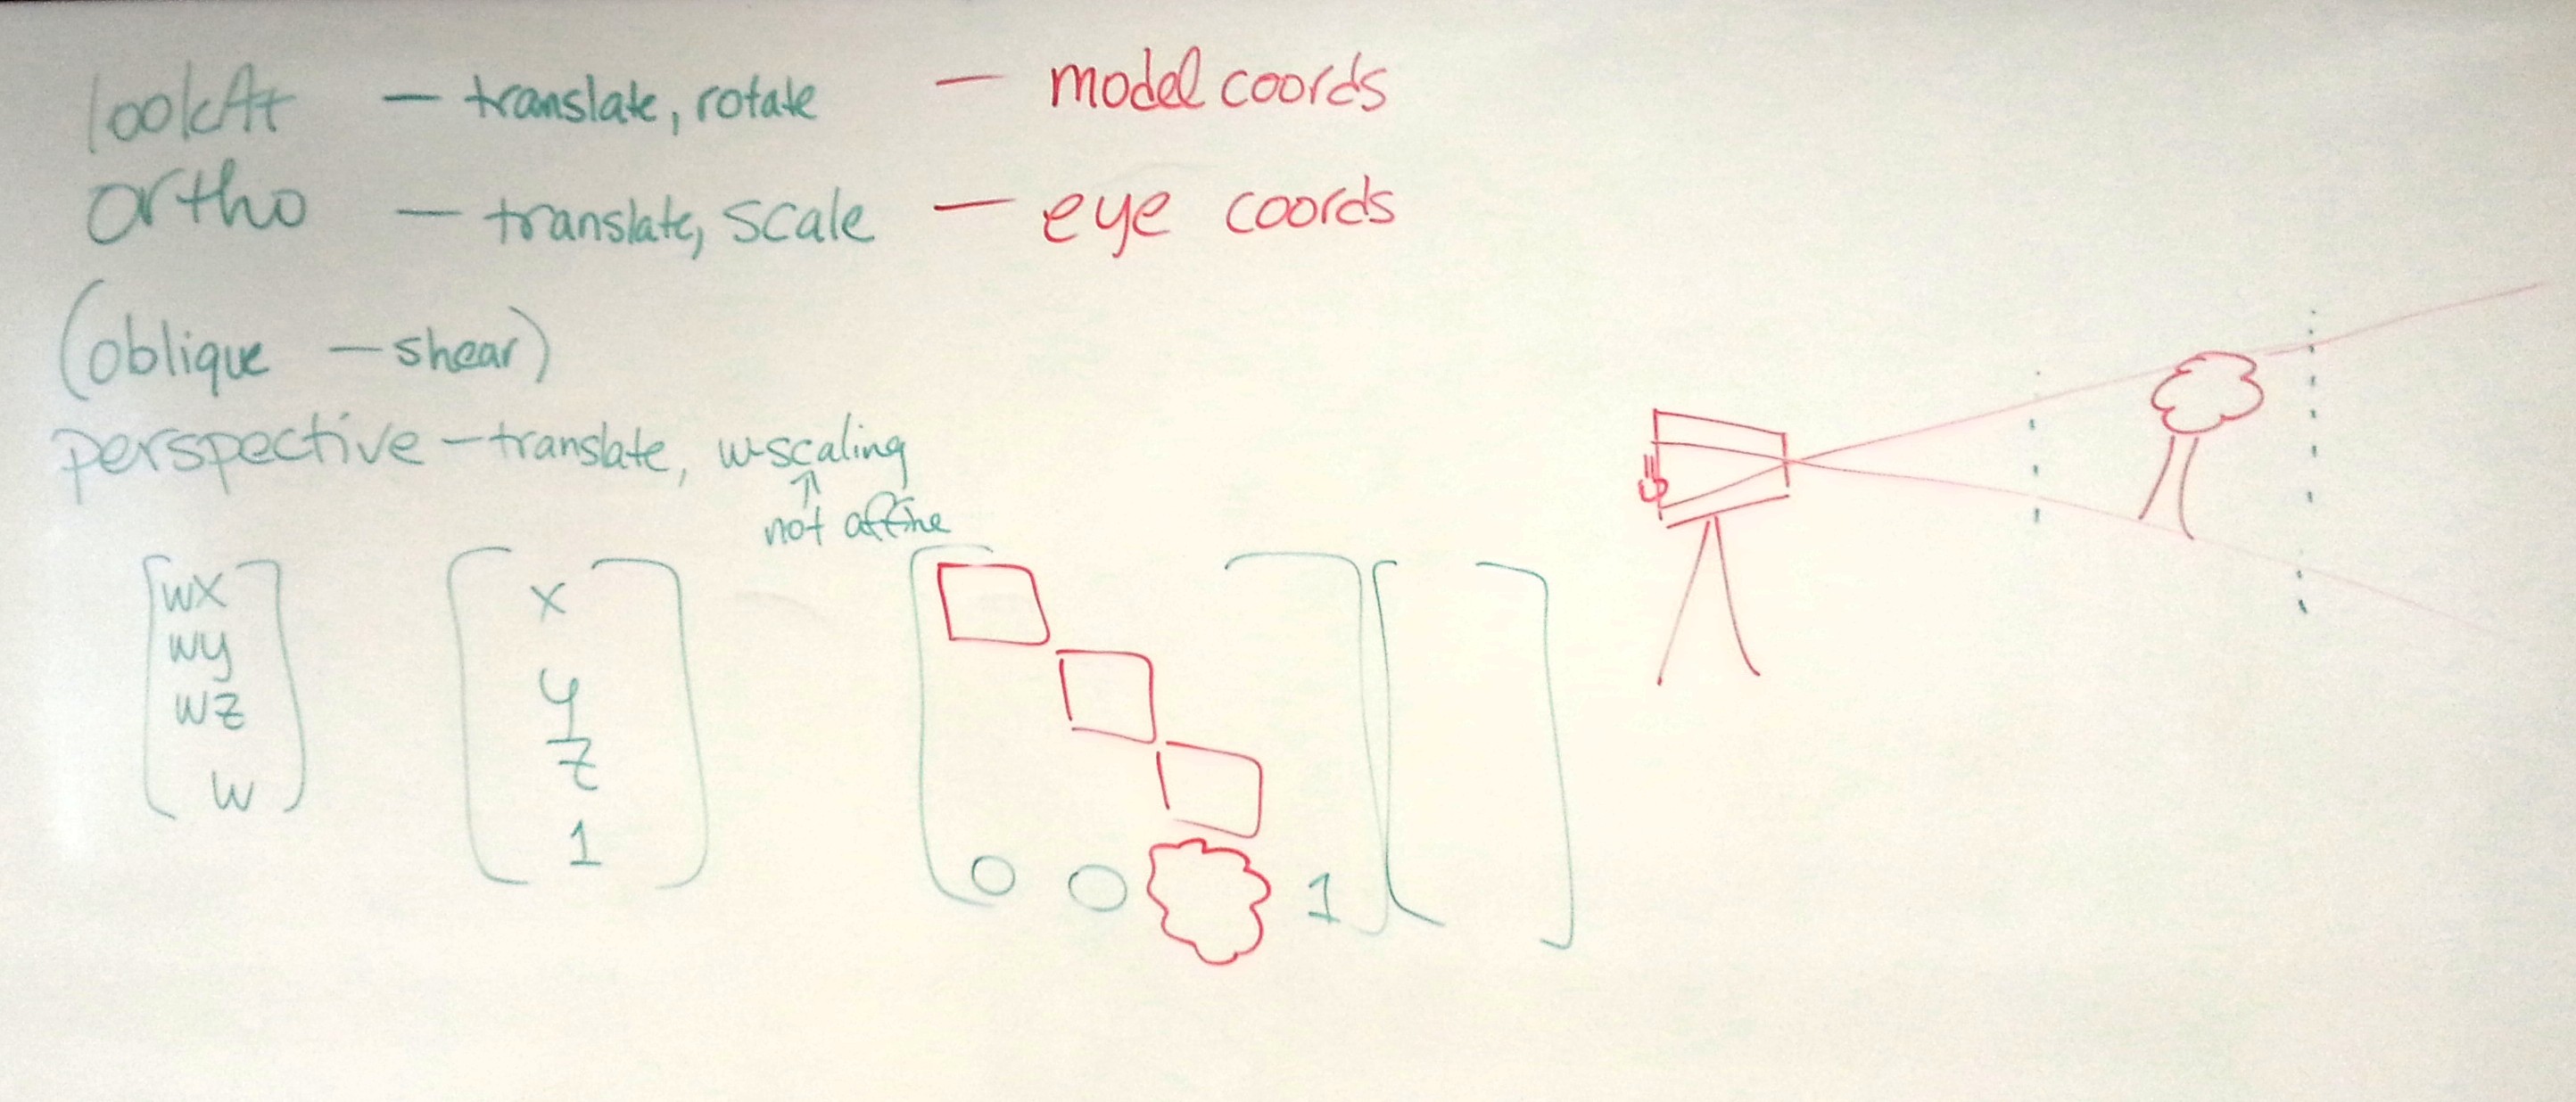 lookAt — translate, rotate — model coords
ortho — translate, scale — eye coords
(oblique — shear)
perspective — translate, w-scaling
↑
not affine
wx
wy
wz
w
x
y
z
1
0 0 1